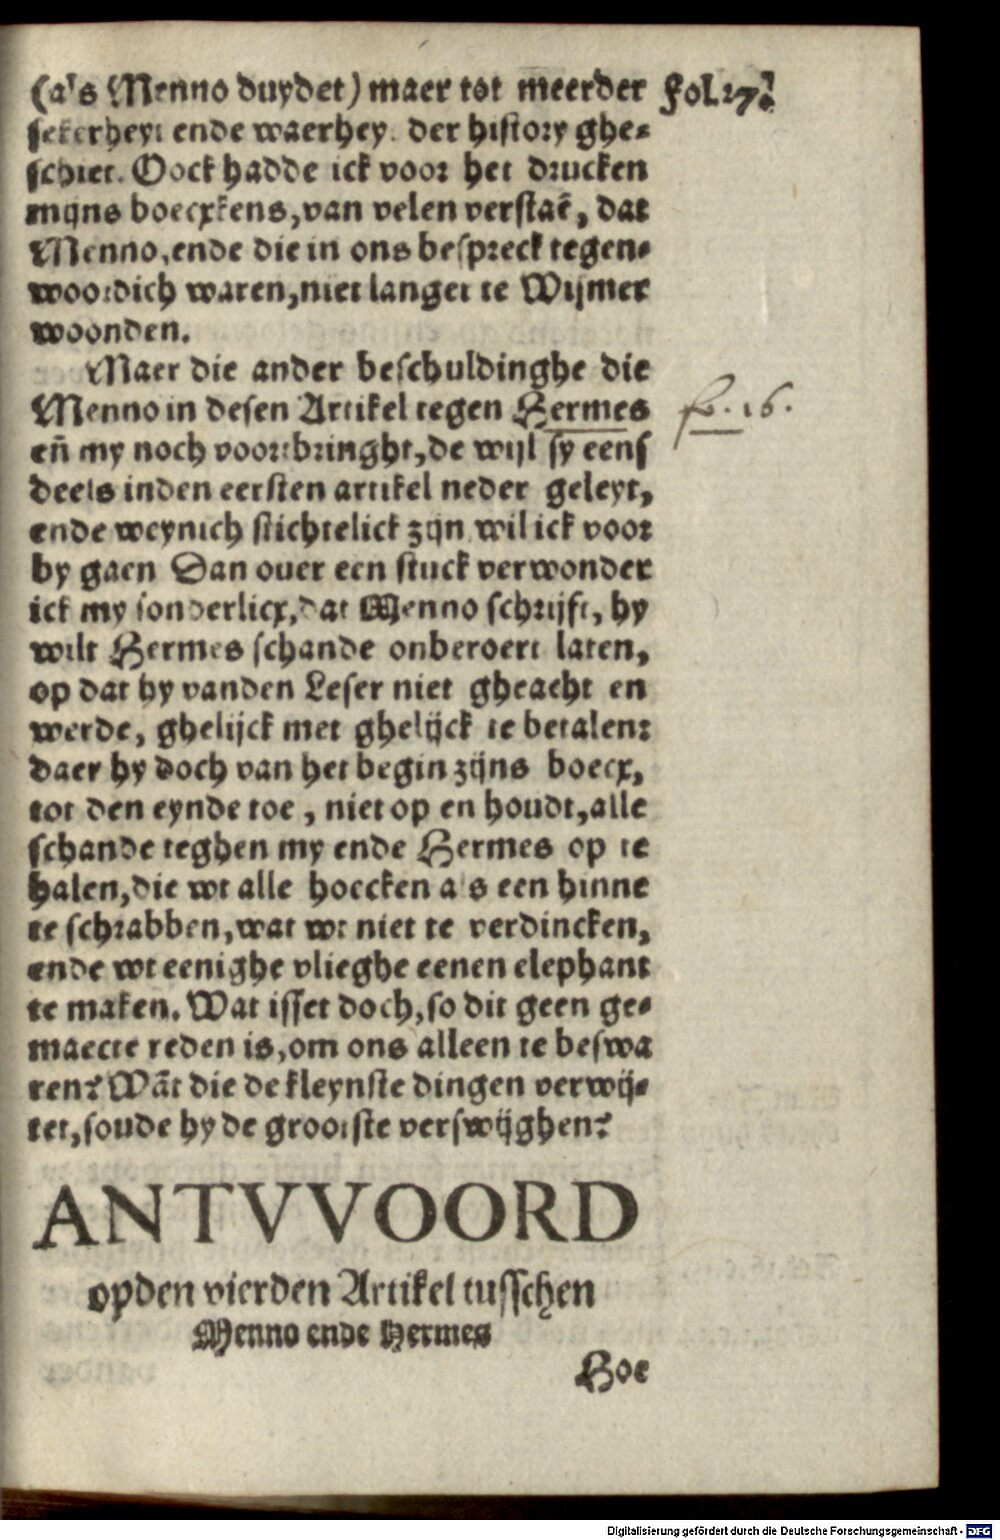 (als Menno duydet) maer tot meerder fol. 27.
sekerheyt ende waerhey. der history ghe-
schiet. Oock hadde ick voor het drucken
mijns boecxkens, van velen verstaē, dat
Menno, ende die in ons bespreck tegen-
woordich waren, niet langer te Wijmer
woonden.
Maer die ander beschuldinghe die
Menno in desen Artikel tegen Hermes fo. 16.
eñ my noch voortbringht, de wijl sy eens
deels inden eersten artikel neder geleyt,
ende weynich stichtelick zijn wil ick voor
by gaen Dan ouer een stuck verwonder
ick my sonderlicx, dat Menno schrijft, hy
wilt Hermes schande onberoert laten,
op dat hy vanden Leser niet gheacht en
werde, ghelijck met ghelijck te betalen:
daer hy doch van het begin zijns boecx,
tot den eynde toe, niet op en houdt, alle
schande teghen my ende Hermes op te
halen, die wt alle hoecken als een hinne
te schrabben, wat wt niet te verdincken,
ende wt eenighe vlieghe eenen elephant
te maken. Wat isset doch, so dit geen ge-
maecte reden is, om ons alleen te beswa
ren? Wāt die de kleynste dingen verwij-
tet, soude hy de grootste verswijghen?
ANTVVOORD
opden vierden Artikel tusschen
Menno ende Hermes
Hoe
Digitalisierung gefördert durch die Deutsche Forschungsgemeinschaft - DFG